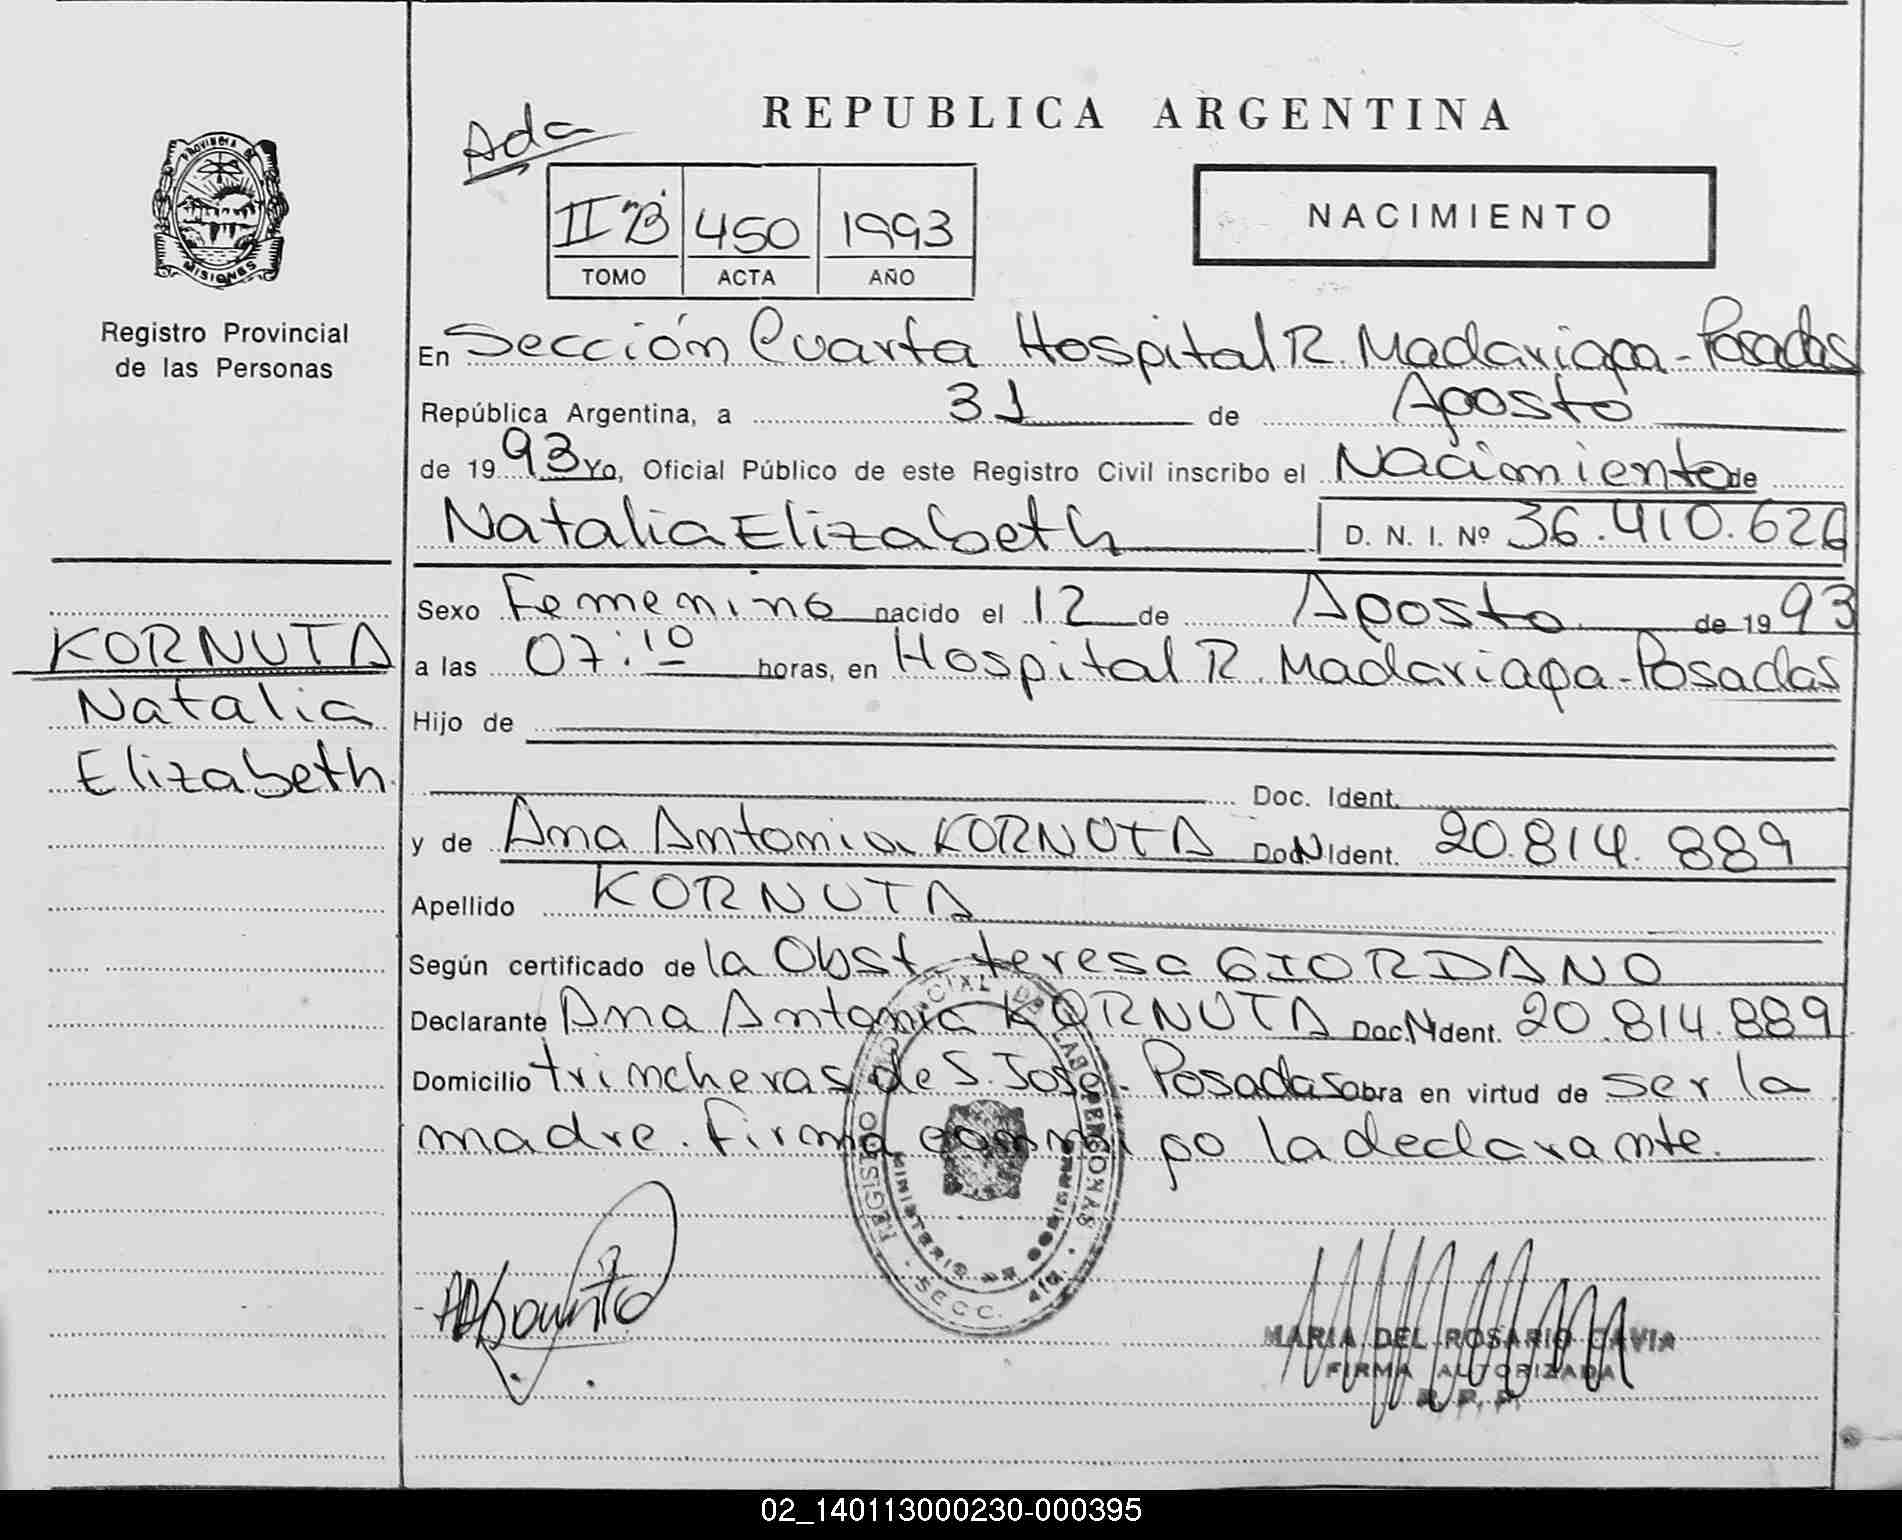 REPUBLICA ARGENTINA
Ada
II "B" 450 1993
TOMO ACTA AÑO
NACIMIENTO
PROVINCIA DE
MISIONES
Registro Provincial
de las Personas
KORNUTA
Natalia
Elizabeth.
En Sección Cuarta Hospital R. Madariaga - Posadas
República Argentina, a 31 de Agosto
de 1993 Yo, Oficial Público de este Registro Civil inscribo el Nacimiento de
Natalia Elizabeth D. N. I. Nº 36.410.626
Sexo Femenino nacido el 12 de Agosto de 1993
a las 07:10 horas, en Hospital R. Madariaga - Posadas
Hijo de
Doc. Ident.
y de Ana Antonia KORNUTA Doc. N Ident. 20.814.889
Apellido KORNUTA
Según certificado de la Obst. teresa GIORDANO
Declarante Ana Antonia KORNUTA Doc. N Ident. 20.814.889
Domicilio trincheras de S. José - Posadas obra en virtud de ser la
madre. firma conmigo la declarante.
REGISTRO PROVINCIAL DE LAS PERSONAS
MINISTERIO DE GOBIERNO
SECC. 4ta.
MARIA DEL ROSARIO CAVIA
FIRMA AUTORIZADA
R. P. P.
02_140113000230-000395